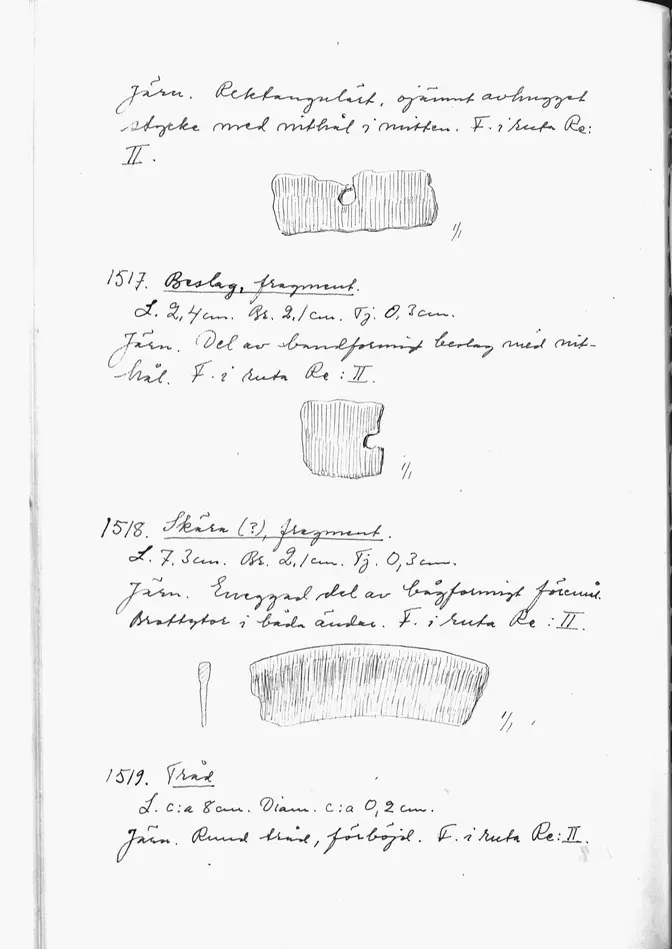 Järn. Rektangulärt, ojämnt avhugget
stycke med nithål i mitten. F. i ruta Re:
II.
1/1
1517. Beslag, fragment.
L. 2,4cm. Br. 2,1cm. Tj. 0,3cm.
Järn. Del av bandformigt beslag med nit-
hål. F. i ruta Re: II.
1/1
1518. Skära (?), fragment.
L. 7,3cm. Br. 2,1cm. Tj. 0,3cm.
Järn. Eneggad del av bågformigt föremål.
Brottytor i båda ändar. F. i ruta Re: II.
1/1
1519. Tråd
L. c:a 8cm. Diam. c:a 0,2cm.
Järn. Rund tråd, förböjd. F. i ruta Re: II.